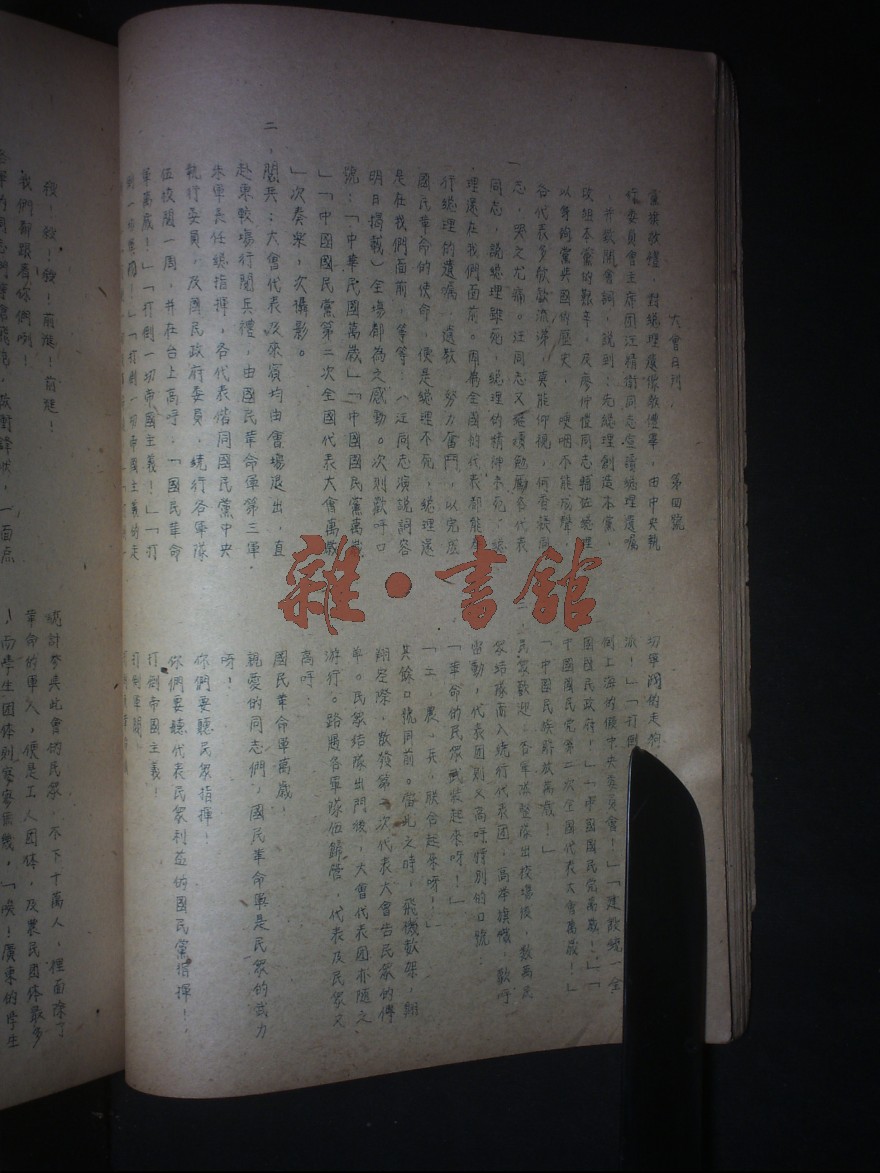 大會日刊， 第四號
直接敬禮，對總理遺像敬禮畢，由中央執
行委員會主席团汪精衛同志宣讀總理遺囑
，并致開會詞，說到：先總理創造本黨，
改組本黨的艱辛，及廖仲愷同志輔佐總理
以身殉黨與國的歷史，哽咽不能成聲
各代表多欷歔流涕，莫能仰視，何香凝同
志，哭之尤痛。汪同志又繼續勉勵各代表
同志，說總理雖死，總理的精神未死，總
理還在我們面前。因為全國的代表都能奉
行總理的遺囑，遺教 努力奮鬥，以完成
國民革命的使命，便是總理不死，總理還
是在我們面前，等等！（汪同志演說詞容
明日揭載）全場都為之感動。次則歡呼口
號：「中華民國萬歲」「中國國民黨萬歲
」「中國國民黨第二次全國代表大會萬歲
」次奏樂，次攝影。
二，閱兵：大會代表及來賓均由會場退出，直
赴東較場行閱兵禮，由國民革命軍第三軍，
朱軍長任總指揮，各代表偕同國民黨中央
執行委員，及國民政府委員，繞行各軍隊
伍校閱一周，并在台上高呼，「國民革命
軍萬歲！」「打倒一切帝國主義！」「打
倒一切軍閥！」「打倒一切帝國主義的走
切軍閥的走狗
派！」「打倒
倒上海的偽中央委員會！」「建設統 全
國國民政府！」「中國國民党萬歲！」「
中國國民党第二次全國代表大會萬歲！」
「中國民族解放萬歲！」
民眾歡迎：各軍隊整隊出校場後，數萬民
眾結隊而入繞行代表团，高举旗幟，歡呼
雷動，代表团則又高呼特別的口號：
「革命的民眾武裝起來呀！」
「工，農，兵，聯合起來呀！」
其餘口號同前。當此之時，飛機數架，翱
翔空際，散發第二次代表大會告民眾的傳
單。民眾結隊出門後，大會代表团亦隨之
游行。路過各軍隊伍歸營，代表及民眾又
高呼：
國民革命軍萬歲，
親愛的同志們，國民革命軍是民眾的武力
呀！
你們要聽民眾指揮！
你們要聽代表民眾利益的國民黨指揮！，
打倒帝國主義！
打倒軍閥！
殺！殺！殺！前進！前進！
我們都跟着你們咧！
統計參與此會的民眾，不下十萬人，裡面除了
革命的軍人，便是工人团体，及農民团体最多
！而學生团体則寥寥無幾，「唉！廣東的學生